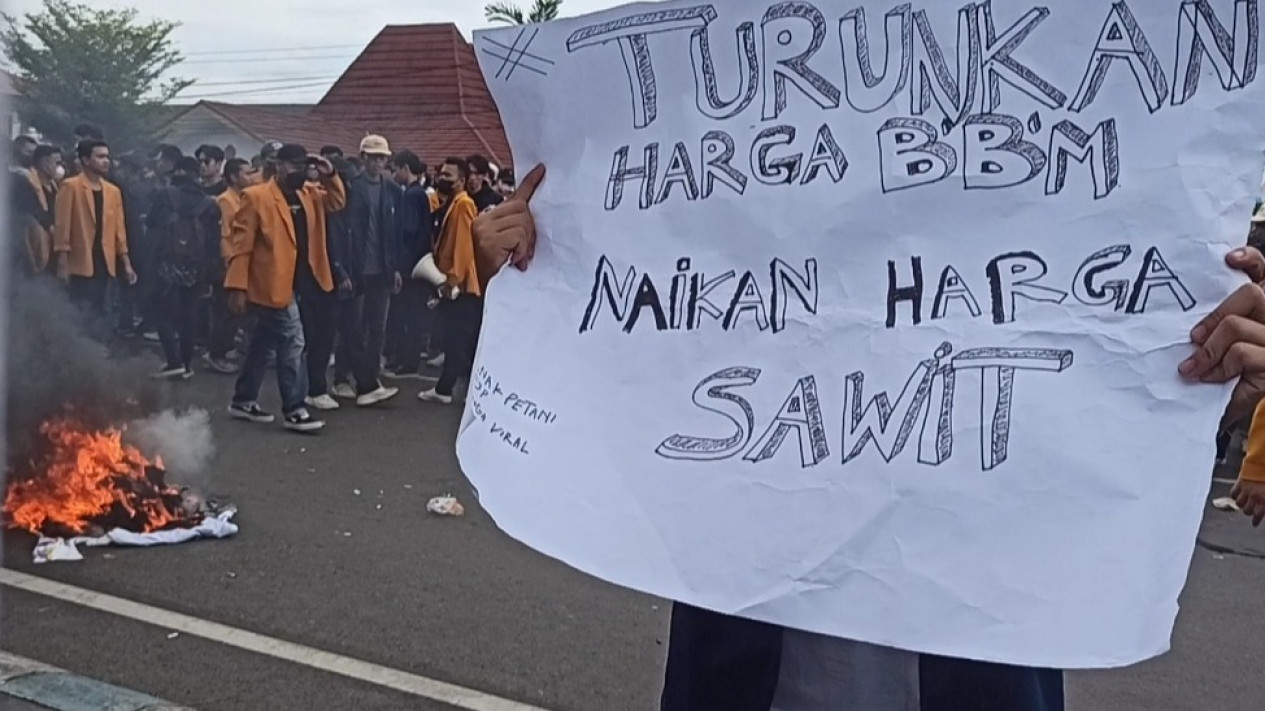 # TURUNKAN
HARGA B'B'M
NAiKAN HARGA
SAWiT
PETANI
VIRAL